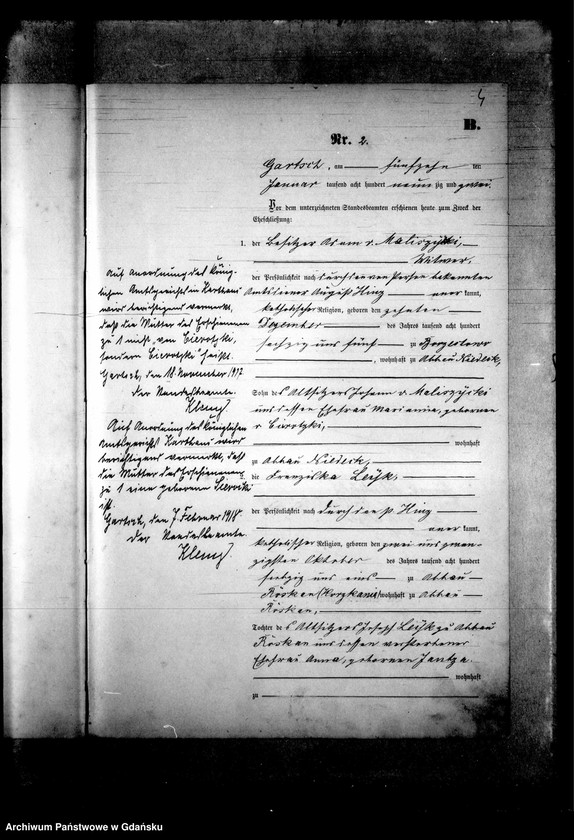 4
B.
Nr. 2.
Gartsch, am fünfzehn ten
Januar tausend acht hundert neun zig und zwei.
Vor dem unterzeichneten Standesbeamten erschienen heute zum Zweck der
Eheschließung:
1. der Besitzer Adam v. Maliszycki,
Wittwer,
der Persönlichkeit nach durch den von Person bekannten
Amtsdiener August Hing aner kannt,
katholischer Religion, geboren den zehnten
Dezember des Jahres tausend acht hundert
sechzig und fünf zu
, wohnhaft zu Abbau Niedeck,
Sohn des Altsitzers Johann v. Maliszycki
und dessen Ehefrau Marianna, geborenen
v
wohnhaft
zu Abbau Niedeck,
die Franziska Leyk,
der Persönlichkeit nach durch den p. Hing
aner kannt,
katholischer Religion, geboren den zwei und zwan-
zigsten Oktober des Jahres tausend acht hundert
siebzig und eins zu Abbau
Röskau wohnhaft zu Abbau
Röskau,
Tochter des Altsitzers Joseph Leyk zu Abbau
Röskau und dessen verstorbener
Ehefrau Anna, geborenen Jantza.
wohnhaft
zu
Auf Anordnung des König-
lichen Amtsgerichts in Karthaus
wird berichtigend vermerkt,
daß die Mutter des Erschienenen
zu 1 nicht von
sondern heißt.
Gartsch, den 18. November 1917
Der Standesbeamte.
Auf Anordnung des Königlichen
Amtsgerichts Karthaus wird
berichtigend vermerkt, daß
die Mutter des Erschienenen
zu 1 eine geborene
ist.
Gartsch, den 7. Februar 1918.
Der Standesbeamte.
Archiwum Państwowe w Gdańsku